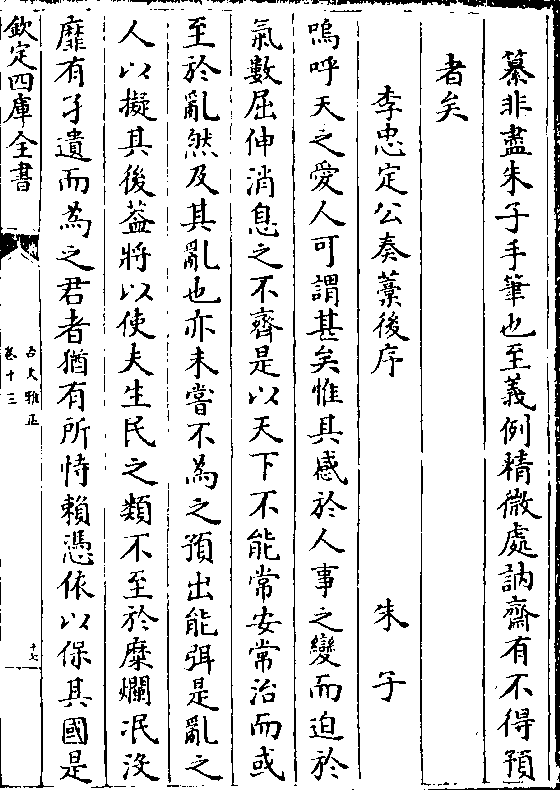 纂非盡朱子手筆也至義例精微處訥齋有不得預
者矣
李忠定公奏藁後序 朱子
嗚呼天之愛人可謂甚矣惟其感於人事之變而迫於
氣數屈伸消息之不齊是以天下不能常安常治而或
至於亂然及其亂也亦未嘗不為之預出能弭是亂之
人以擬其後葢將以使夫生民之類不至於糜爛泯沒
靡有孑遺而為之君者猶有所恃賴憑依以保其國是
欽定四庫全書
古文雅正
卷十三
十七